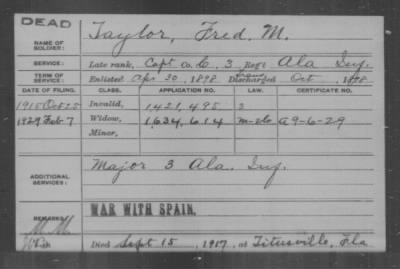 DEAD
NAME OF SOLDIER: Taylor, Fred. M.
SERVICE: Late rank, Capt. Co. C, 3 Reg't Ala Inf.
TERM OF SERVICE: Enlisted Apr 30, 1898 Discharged Oct , 1898
DATE OF FILING. CLASS. APPLICATION NO. LAW. CERTIFICATE NO.
1915 Oct 25 Invalid, 1,421,495
1929 Feb 7 Widow, 1,634,614 A 9-6-29
Minor,
ADDITIONAL SERVICES: Major 3 Ala. Inf.
REMARKS: WAR WITH SPAIN.
Died Sept 15, 1917, at Titusville, Fla